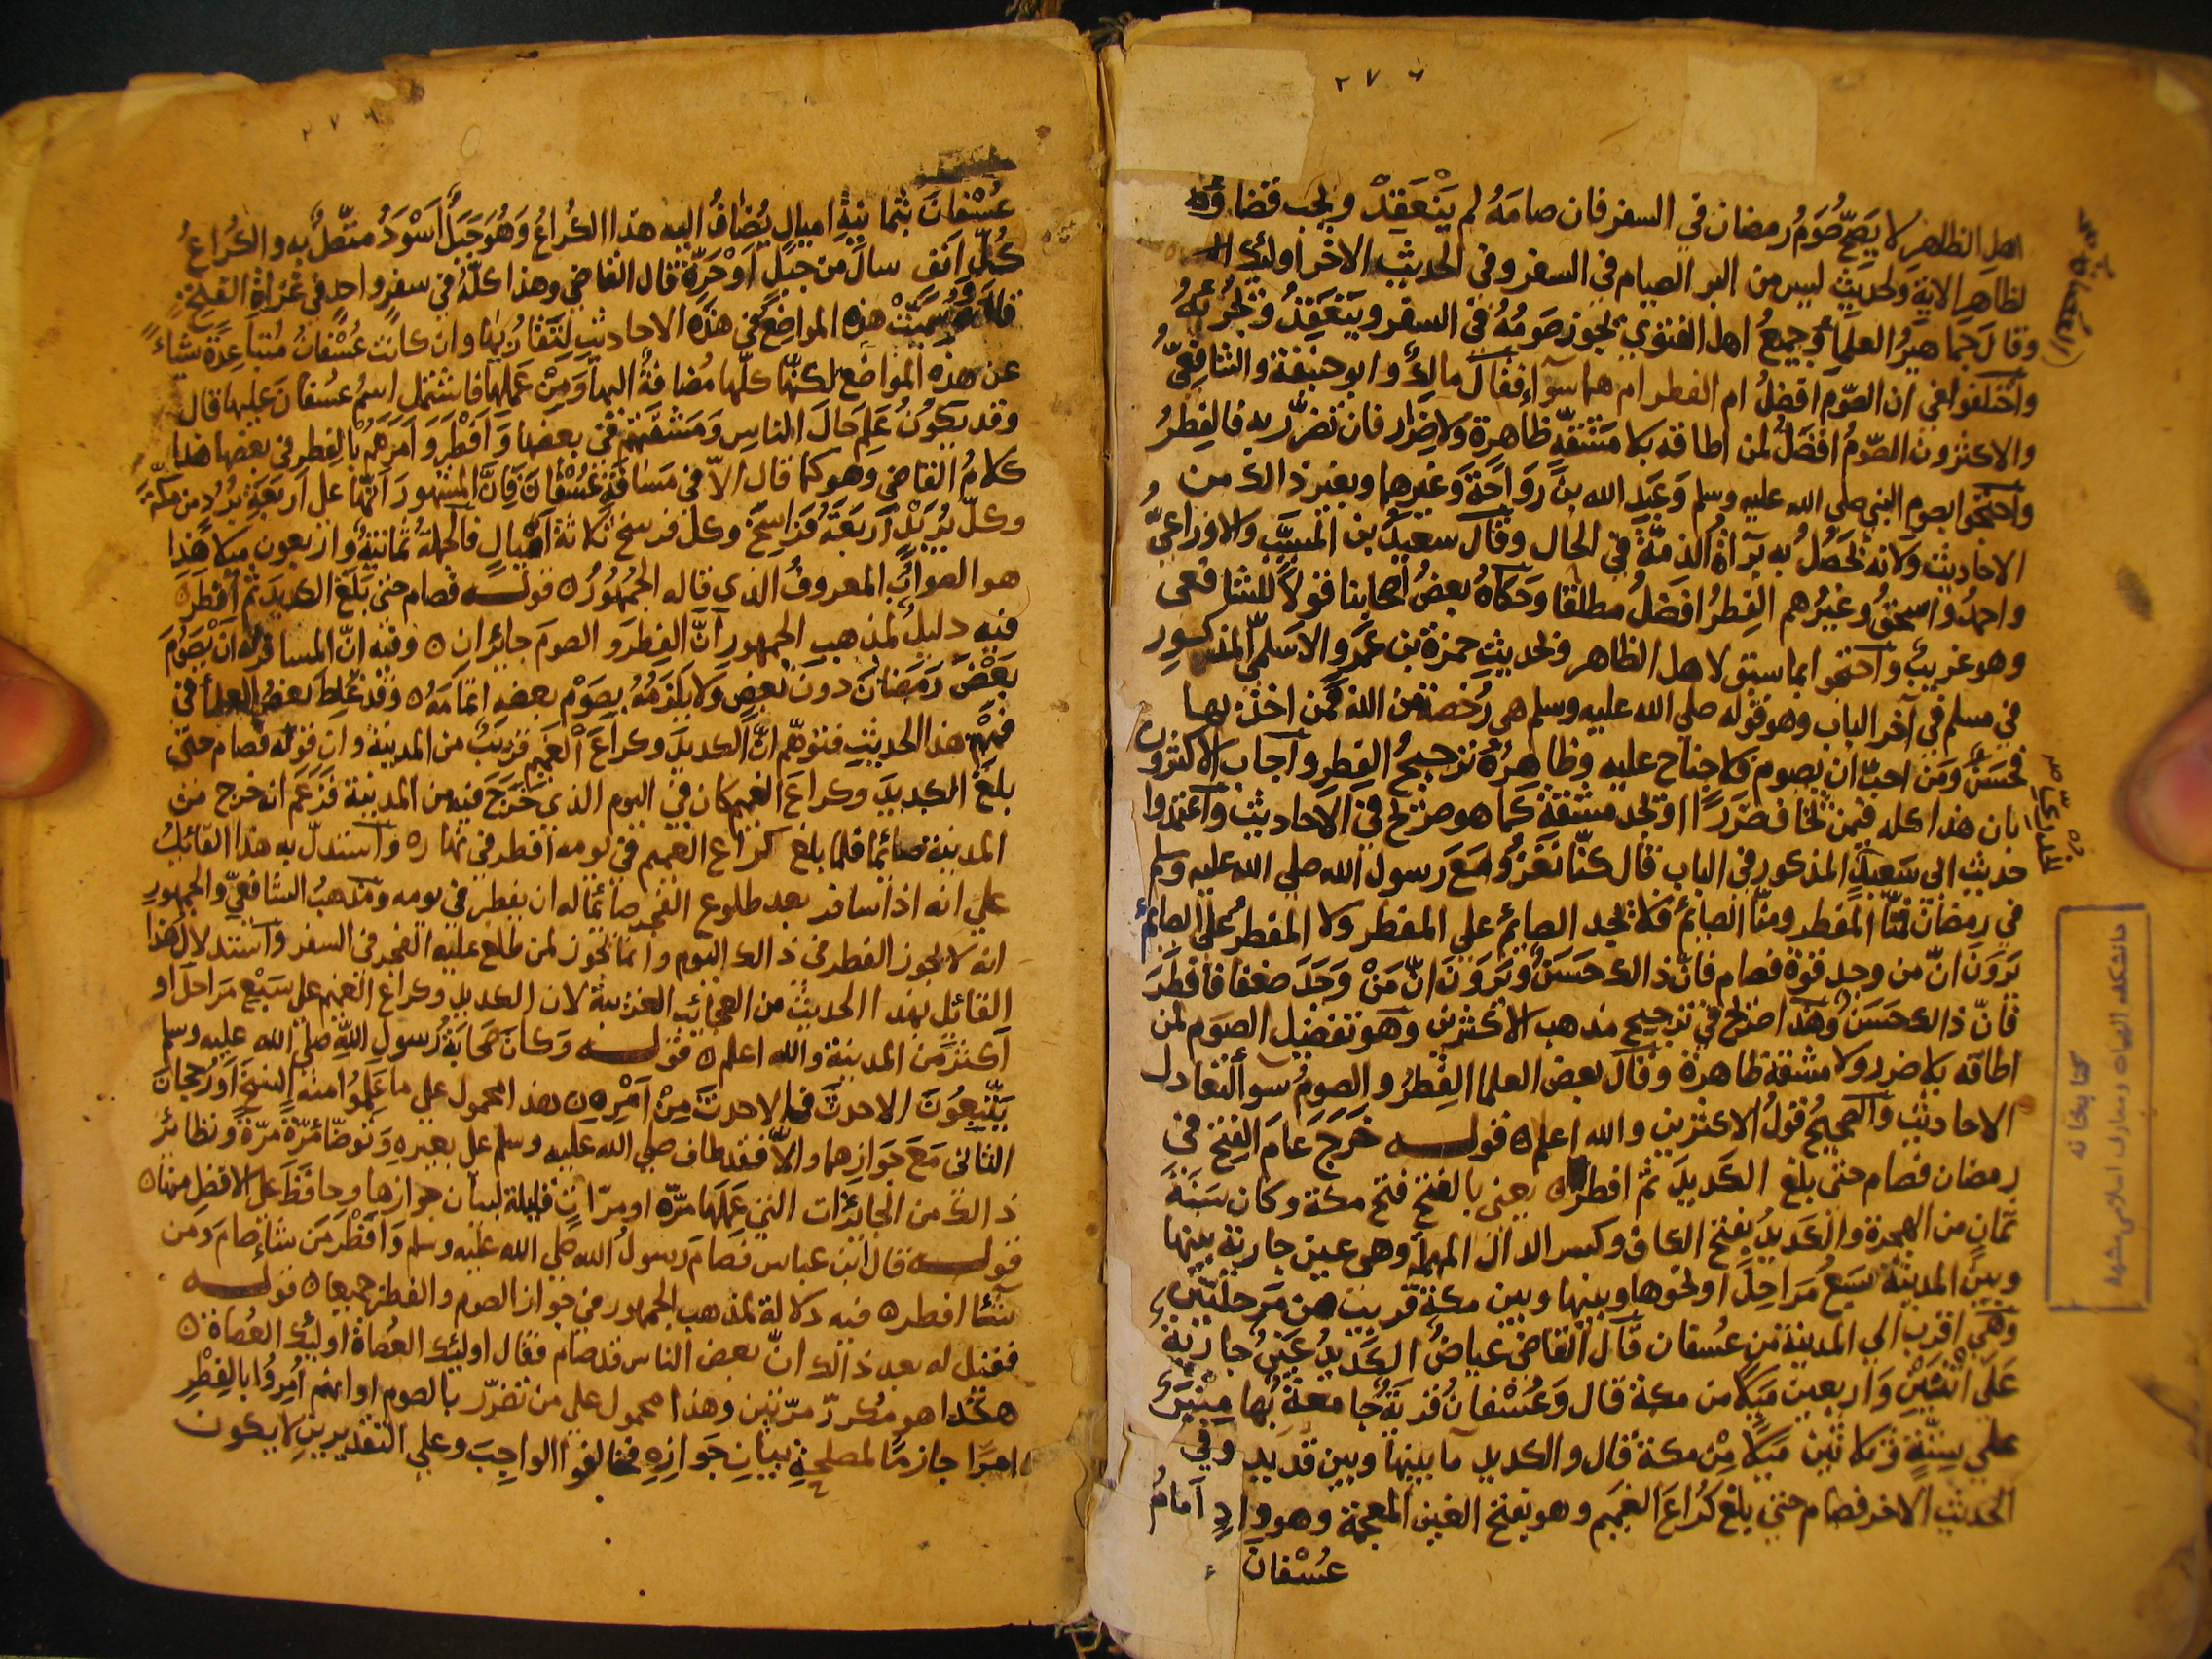 ٢٧٦
اهل الظاهر لا يصح صوم رمضان في السفر فان صامه لم ينعقد ويجب قضاؤه
لظاهر الاية ولحديث ليس من البر الصيام في السفر وفي الحديث الاخر اوليك
العصاة
وقال جماهير العلما وجميع اهل الفتوي يجوز صومه في السفر وينعقد ويجزئه
واختلفوا في ان الصوم افضل ام الفطر ام هما سوآء فقال مالك وابو حنيفة والشافعي
والاكثرون الصوم افضل لمن اطاقه بلا مشقة ظاهرة ولا ضرار فان تضرر به فالفطر
واحتجوا بصوم النبي صلي الله عليه وسلم وعبد الله بن رواحة وغيرهما وبغير ذالك من
الاحاديث ولانه تحصل به برآة الذمة في الحال وقال سعيد بن المسيب والاوزاعي
واحمد واسحق وغيرهم الفطر افضل مطلقا وحكاه بعض اصحابنا قولا للشافعي
وهو غريب واحتجوا بما سبق لاهل الظاهر ولحديث حمزة بن عمرو الاسلمي المذكور
في مسلم في آخر الباب وهو قوله صلي الله عليه وسلم هي رخصة من الله فمن اخذ بها
فحسن ومن احب ان يصوم فلا جناح عليه وظاهره ترجيح الفطر واجاب الاكثرون
بان هذا كله فيمن تخاف ضررا او تجد مشقة كما هو صريح في الاحاديث واعتمدوا
حديث ابي سعيد المذكور في الباب قال كنا نغزو مع رسول الله صلي الله عليه وسلم
في رمضان فمنا المفطر ومنا الصائم فلا يجد الصائم علي المفطر ولا المفطر علي الصائم
يرون ان من وجد قوة فصام فان ذالك حسن ويرون ان من وجد ضعفا فافطر
فان ذالك حسن وهذا صريح في ترجيح مذهب الاكثرين وهو تفضيل الصوم لمن
اطاقه بلا ضرر ولا مشقة ظاهرة وقال بعض العلما الفطر والصوم سوآ لتعادل
الاحاديث والصحيح قول الاكثرين والله اعلم ه قوله خرج عام الفتح في
رمضان فصام حتي بلغ الكديد ثم افطر ه يعني بالفتح فتح مكة وكان سنة
ثمان من الهجرة والكديد بفتح الكاف وكسر الدال المهملة وهي عين جارية بينها
وبين المدينة سبع مراحل او نحوها وبينها وبين مكة قريب من مرحلتين
وهي اقرب الي المدينة من عسفان قال القاضي عياض الكديد عين جارية
علي اثنين واربعين ميلا من مكة قال وعسفان قرية جامعة بها منبر
علي ستة وثلاثين ميلا من مكة قال والكديد ما بينها وبين قديد وفي
الحديث الاخر فصام حتي بلغ كراع الغميم وهو بفتح الغين المعجمة وهو واد امام
عسفان
كتابخانه
دانشكده الهيات ومعارف اسلامي مشهد
٢٧٦
عسفان بثمانية اميال يضاف اليه هذا الكراع وهو جبل اسود متصل به والكراع
كل انف سال من جبل او حرة قال القاضي وهذا كله في سفر واحد في غزاة الفتح
وسميت هذه المواضع في هذه الاحاديث لتقاربها وان كانت عسفان متباعدة شاء
عن هذه المواضع لكنها كلها مضافة اليها ومن عملها فاشتمل اسم عسفان عليها قال
وقد يكون علم حال الناس ومشقتهم في بعضها وافطر وامرهم بالفطر في بعضها هذا
كلام القاضي وهو كما قال الا في مسافة عسفان فان المشهور انها علي اربعة برد من مكة
وكل بريد اربعة فراسخ وكل فرسخ ثلاثة اميال فالجملة ثمانية واربعون ميلا هذا
هو الصواب المعروف الذي قاله الجمهور ه قوله فصام حتي بلغ الكديد ثم افطر ه
فيه دليل لمذهب الجمهور ان الفطر والصوم جايزان ه وفيه ان المسافر له ان يصوم
بعض رمضان دون بعض ولا يلزمه بصوم بعضه اتمامه ه وقد غلط بعض العلما في
فهم هذا الحديث فتوهم ان الكديد وكراع الغميم قريب من المدينة وان قوله فصام حتي
بلغ الكديد وكراع الغميم كان في اليوم الذي خرج فيه من المدينة فزعم انه خرج من
المدينة صائما فلما بلغ كراع الغميم في يومه افطر في نهاره واستدل به هذا القائل
علي انه اذا سافر بعد طلوع الفجر صائما له ان يفطر في يومه ومذهب الشافعي والجمهور
انه لا يجوز الفطر في ذالك اليوم وانما يجوز لمن طلع عليه الفجر في السفر واستدلال هذا
القائل بهذا الحديث من العجائب الغريبة لان الكديد وكراع الغميم علي سبع مراحل او
اكثر من المدينة والله اعلم ه قوله وكان صحابة رسول الله صلي الله عليه وسلم
يتبعون الاحدث فالاحدث من امره ه هذا محمول علي ما علموا منه النسخ او رجحان
الثاني مع جوازهما والا فقد طاف صلي الله عليه وسلم علي بعيره وتوضا مرة مرة ونظائر
ذالك من الجائزات التي عملها مرة او مرات قليلة لبيان جوازها وحافظ علي الافضل منها ه
قوله قال ابن عباس فصام رسول الله صلي الله عليه وسلم وافطر من شاء صام ومن
شآء افطر ه فيه دلالة لمذهب الجمهور في جواز الصوم والفطر جميعا ه قوله
فقيل له بعد ذالك ان بعض الناس قد صام فقال اوليك العصاة اوليك العصاة ه
هكذا هو مكرر مرتين وهذا محمول علي من تضرر بالصوم او انهم امروا بالفطر
امرا جازما لمصلحة بيان جوازه فخالفوا الواجب وعلي التقديرين لا يكون